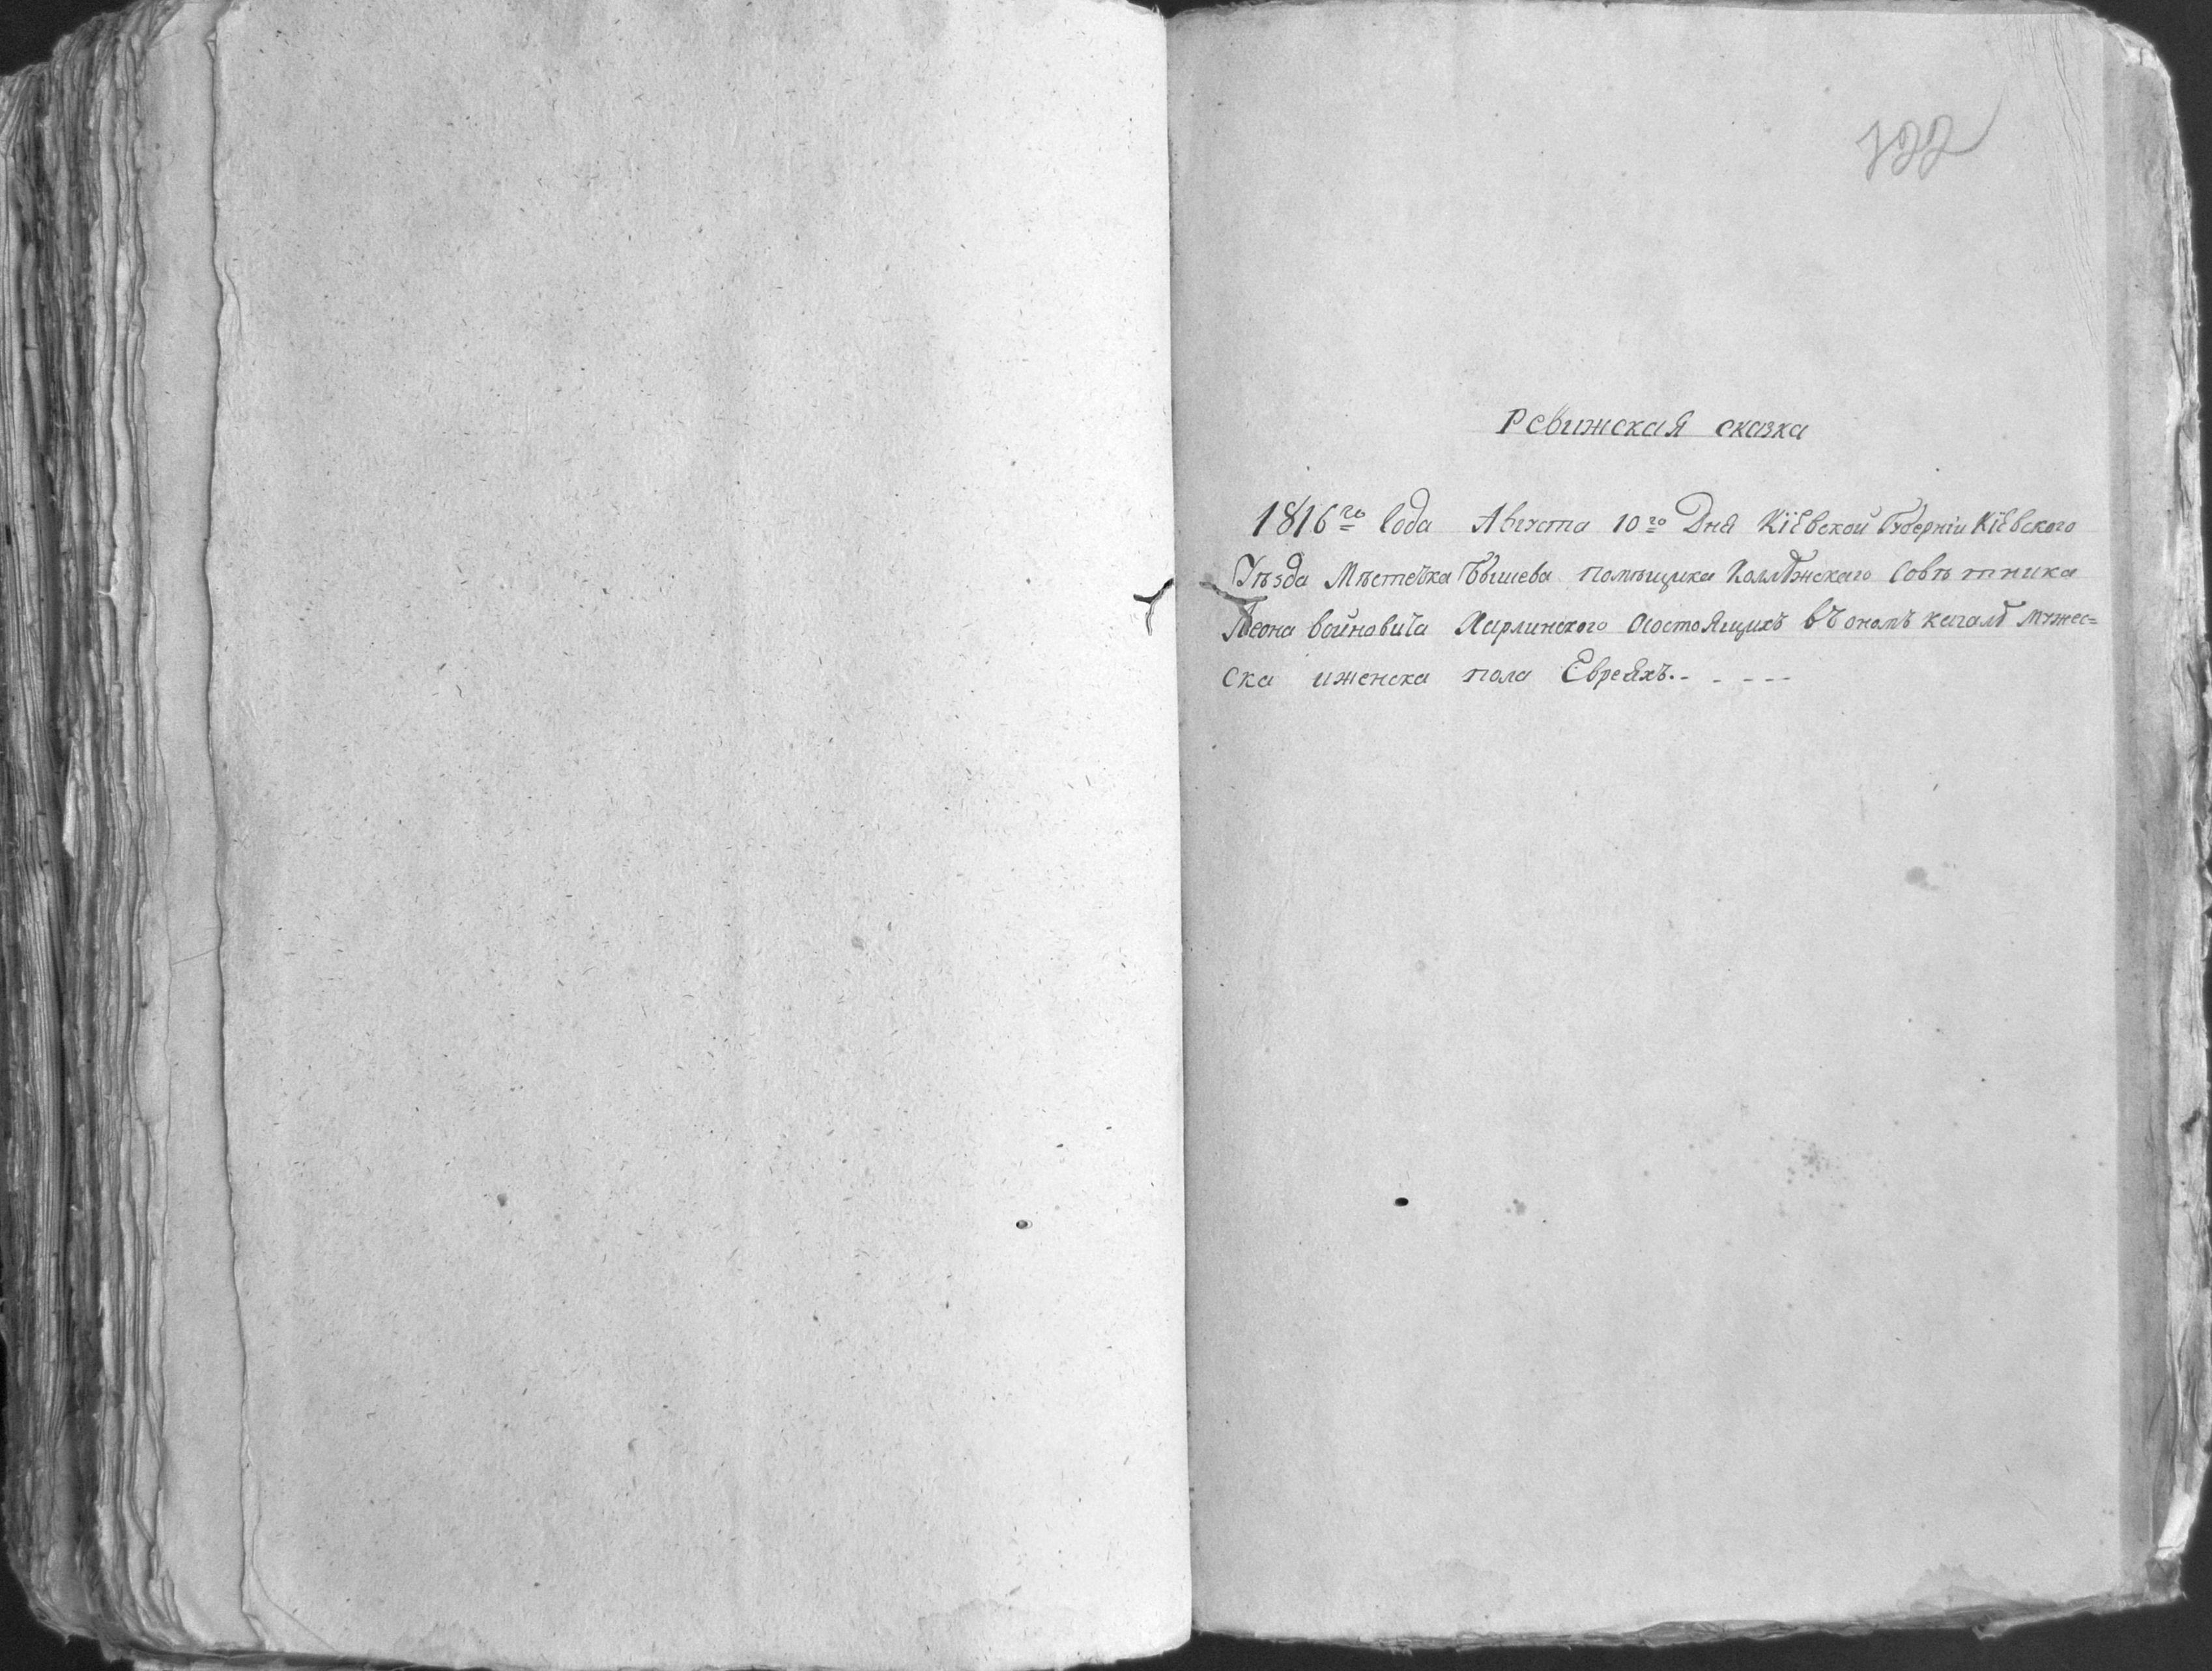 722
Ревижская сказка
1816го Года Августа 10го Дня Кіевской Губерніи Кіевского
Уѣзда Мѣстечка Бышева помѣщика Коллѣжскаго Совѣтника
Леона войновича Харлинского осостоящихъ въ ономъ кагалѣ мужес=
ска иженска пола Евреяхъ.- - - - -